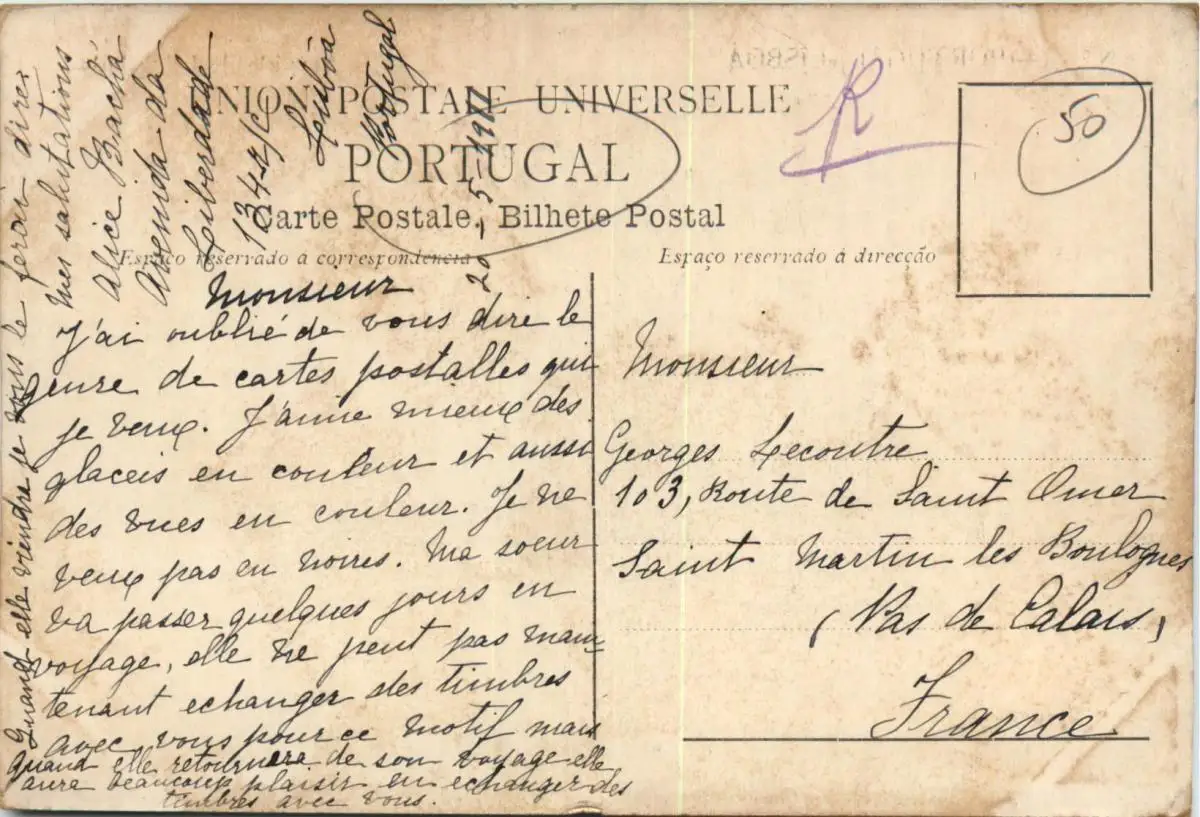 UNION POSTALE UNIVERSELLE
PORTUGAL
Carte Postale. Bilhete Postal
Espaço reservado á correspondencia
Espaço reservado á direcção
R
50
20-5-1911
Monsieur
J'ai oublié de vous dire le
genre de cartes postalles qui
je veux. J'aime mieux des
glaceis en couleur et aussi
des vues en couleur. Je ne
veux pas en noires. Ma soeur
va passer quelques jours en
voyage, elle ne peut pas main-
tenant echanger des timbres
avec vous pour ce motif mais
quand elle retournera de son voyage elle
aura beaucoup plaisir en echanger des
timbres avec vous.
Quand elle viendra je vous le ferai dire
Mes salutations
Alice Bachá
Avenida da
Leiberdade
Leisboa
Portugal
Monsieur
Georges Lecoutre
103, Route de Saint Omer
Saint Martin les Boulognes
(Pas de Calais)
France